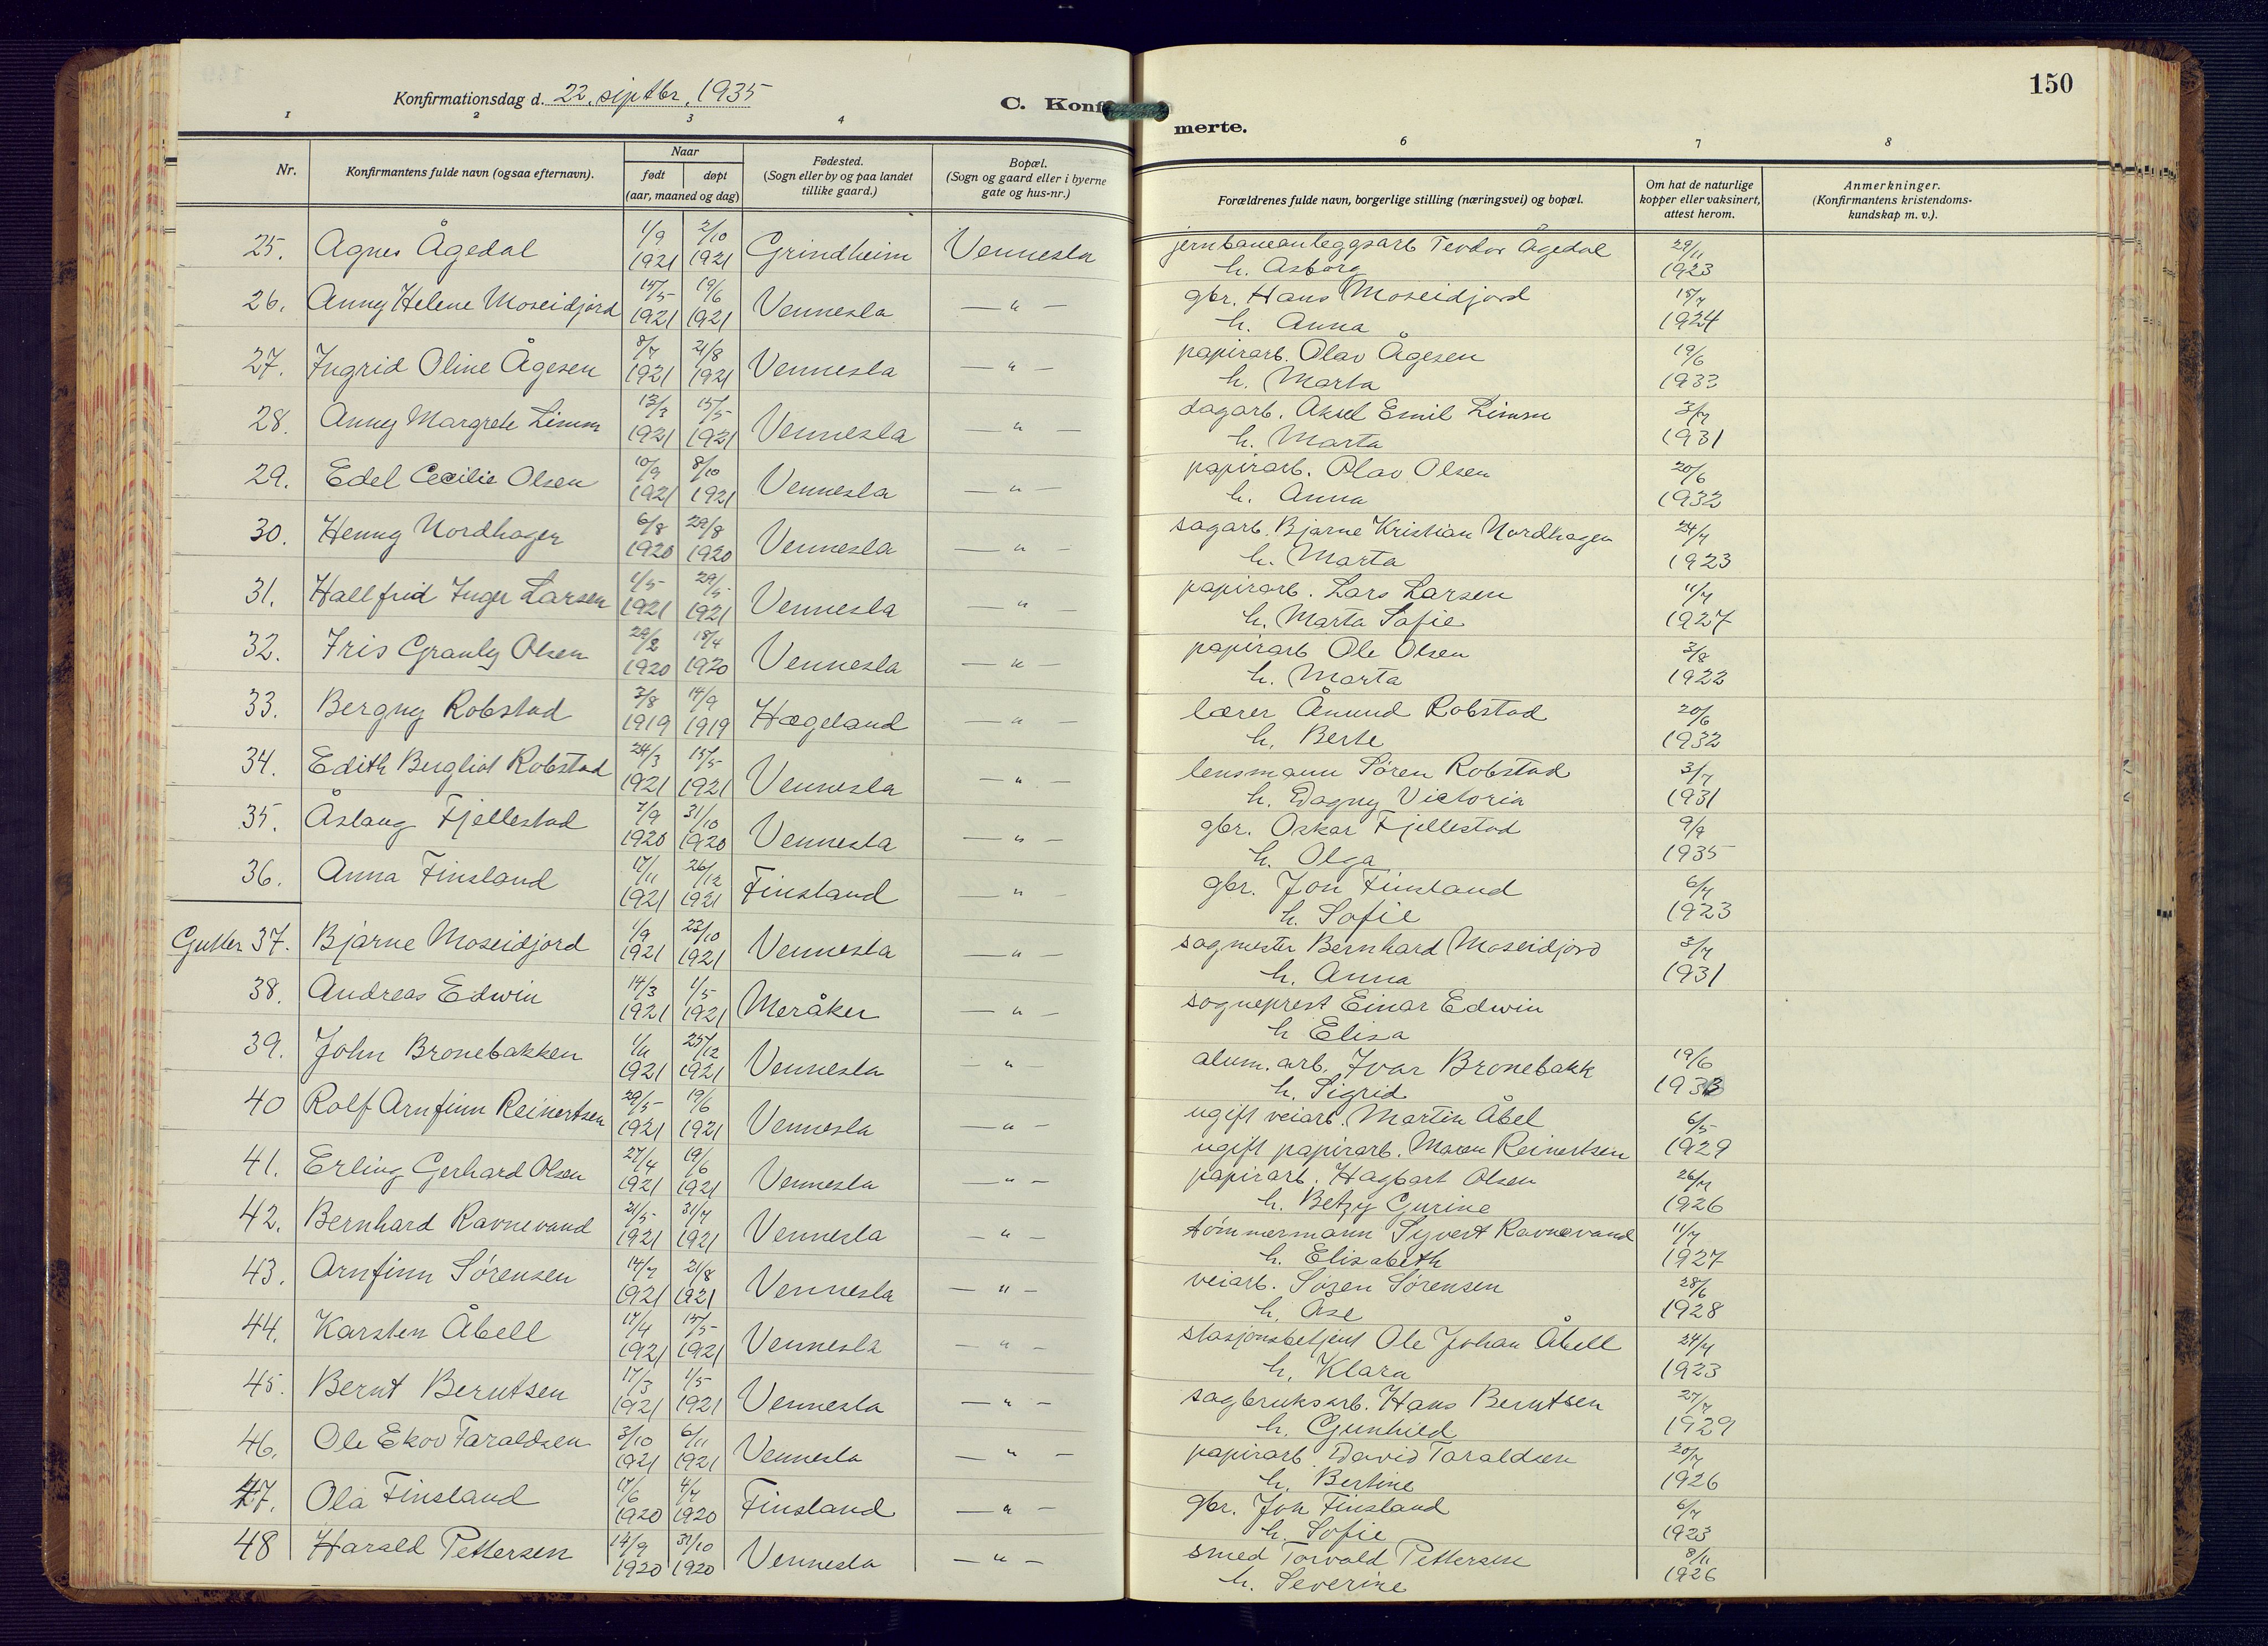 150
Konfirmationsdag d. 22. septbr. 1935
C. Konf
merte.
1 2 3 4 6 7 8
Nr.
Konfirmantens fulde navn (ogsaa efternavn).
Naar
født døpt
(aar, maaned og dag)
Fødested.
(Sogn eller by og paa landet
tillike gaard.)
Bopæl.
(Sogn og gaard eller i byerne
gate og hus-nr.)
Forældrenes fulde navn, borgerlige stilling (næringsvei) og bopæl.
Om hat de naturlige
kopper eller vaksinert,
attest herom.
Anmerkninger.
(Konfirmantens kristendoms-
kundskap m. v.).
25. Agnes Ågedal 1/9 1921 2/10 1921 Grindheim Vennesla jernbaneanleggsarb Teodor Ågedal 29/11
h. Asborg 1923
26. Anny Helene Moseidjord 15/5 1921 19/6 1921 Vennesla — " — gbr. Hans Moseidjord 15/7
h. Anna 1924
27. Ingrid Oline Ågesen 8/7 1921 21/8 1921 Vennesla — " — papirarb. Olav Ågesen 19/6
h. Marta 1933
28. Anny Margrete Limm 13/3 1921 15/5 1921 Vennesla — " — dagarb. Aksel Emil Limm 3/7
h. Marta 1931
29. Edel Cecilie Olsen 10/9 1921 8/10 1921 Vennesla — " — papirarb. Olav Olsen 20/6
h. Anna 1932
30. Henny Nordhagen 6/8 1920 29/8 1920 Vennesla — " — sagarb. Bjarne Kristian Nordhagen 24/7
h. Marta 1923
31. Hallfrid Inger Larsen 1/5 1921 29/5 1921 Vennesla — " — papirarb. Lars Larsen 11/7
h. Marta Sofie 1927
32. Iris Granly Olsen 29/2 1920 18/4 1920 Vennesla — " — papirarb Ole Olsen 3/8
h. Marta 1922
33. Bergny Robstad 3/8 1919 14/9 1919 Hægeland — " — lærer Åmund Robstad 20/6
h. Berte 1932
34. Edith Bergliot Robstad 24/3 1921 15/5 1921 Vennesla — " — lensmann Søren Robstad 3/7
h. Dagny Victoria 1931
35. Åslaug Fjellestad 7/9 1920 31/10 1920 Vennesla — " — gbr. Oskar Fjellestad 9/9
h. Olga 1935
36. Anna Finsland 17/11 1921 26/12 1921 Finsland — " — gbr. Jon Finsland 6/7
h. Sofie 1923
Gutter 37. Bjarne Moseidjord 1/9 1921 23/10 1921 Vennesla — " — sagmester Bernhard Moseidjord 3/7
h. Anna 1931
38. Andreas Edwin 14/3 1921 1/5 1921 Meråker — " — sogneprest Einar Edwin
h Elisa
39. John Bronebakken 1/11 1921 25/12 1921 Vennesla — " — alum. arb. Ivar Bronebakk 19/6
h. Sigrid 1933
40 Rolf Arnfinn Reinertsen 29/5 1921 19/6 1921 Vennesla — " — ugift veiarb. Martin Åbel 6/5
ugift papirarb. Maren Reinertsen 1929
41. Erling Gerhard Olsen 27/4 1921 19/6 1921 Vennesla — " — papirarb. Hagbart Olsen 26/7
h. Betzy Gurine 1926
42. Bernhard Ravnevand 21/5 1921 31/7 1921 Vennesla — " — tømmermann Syvert Ravnevand 11/7
h. Elisabeth 1927
43. Arnfinn Sørensen 14/7 1921 21/8 1921 Vennesla — " — veiarb. Søren Sørensen 28/6
h. Åse 1928
44. Karsten Åbell 17/4 1921 15/5 1921 Vennesla — " — stasjonsbetjent Ole Johan Åbell 24/7
h. Klara 1923
45. Bernt Berntsen 17/3 1921 1/5 1921 Vennesla — " — sagbruksarb. Hans Berntsen 27/7
h. Gunhild 1929
46. Ole Ekov Taraldsen 3/10 1921 6/11 1921 Vennesla — " — papirarb David Taraldsen 20/7
h. Bertine 1926
47. Ola Finsland 17/6 1920 4/7 1920 Finsland — " — gbr. Jon Finsland 6/7
h. Sofie 1923
48 Harald Pettersen 14/9 1920 31/10 1920 Vennesla — " — smed Torvald Pettersen 8/11
h. Severine 1926